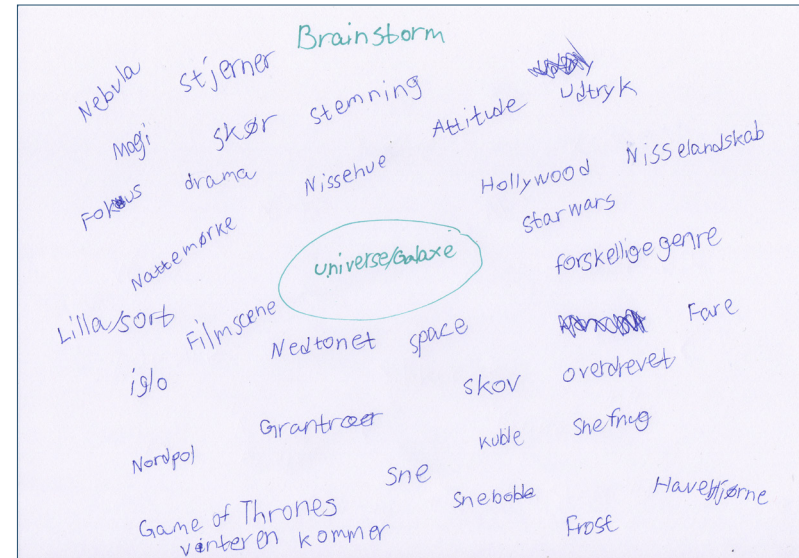 Brainstorm
Nebula
stjerner
Magi
skør
stemning
Attitude
udtryk
Fokus
drama
Nissehue
Hollywood
Nisselandskab
star wars
Nattemørke
universe/Galaxe
forskellige genre
Lilla/sort
Filmscene
Nedtonet
space
Fare
iglo
skov
overdrevet
Grantræer
kuble
Snefnug
Nordpol
sne
Snebolde
Havehjørne
Game of Thrones
vinteren kommer
Frost